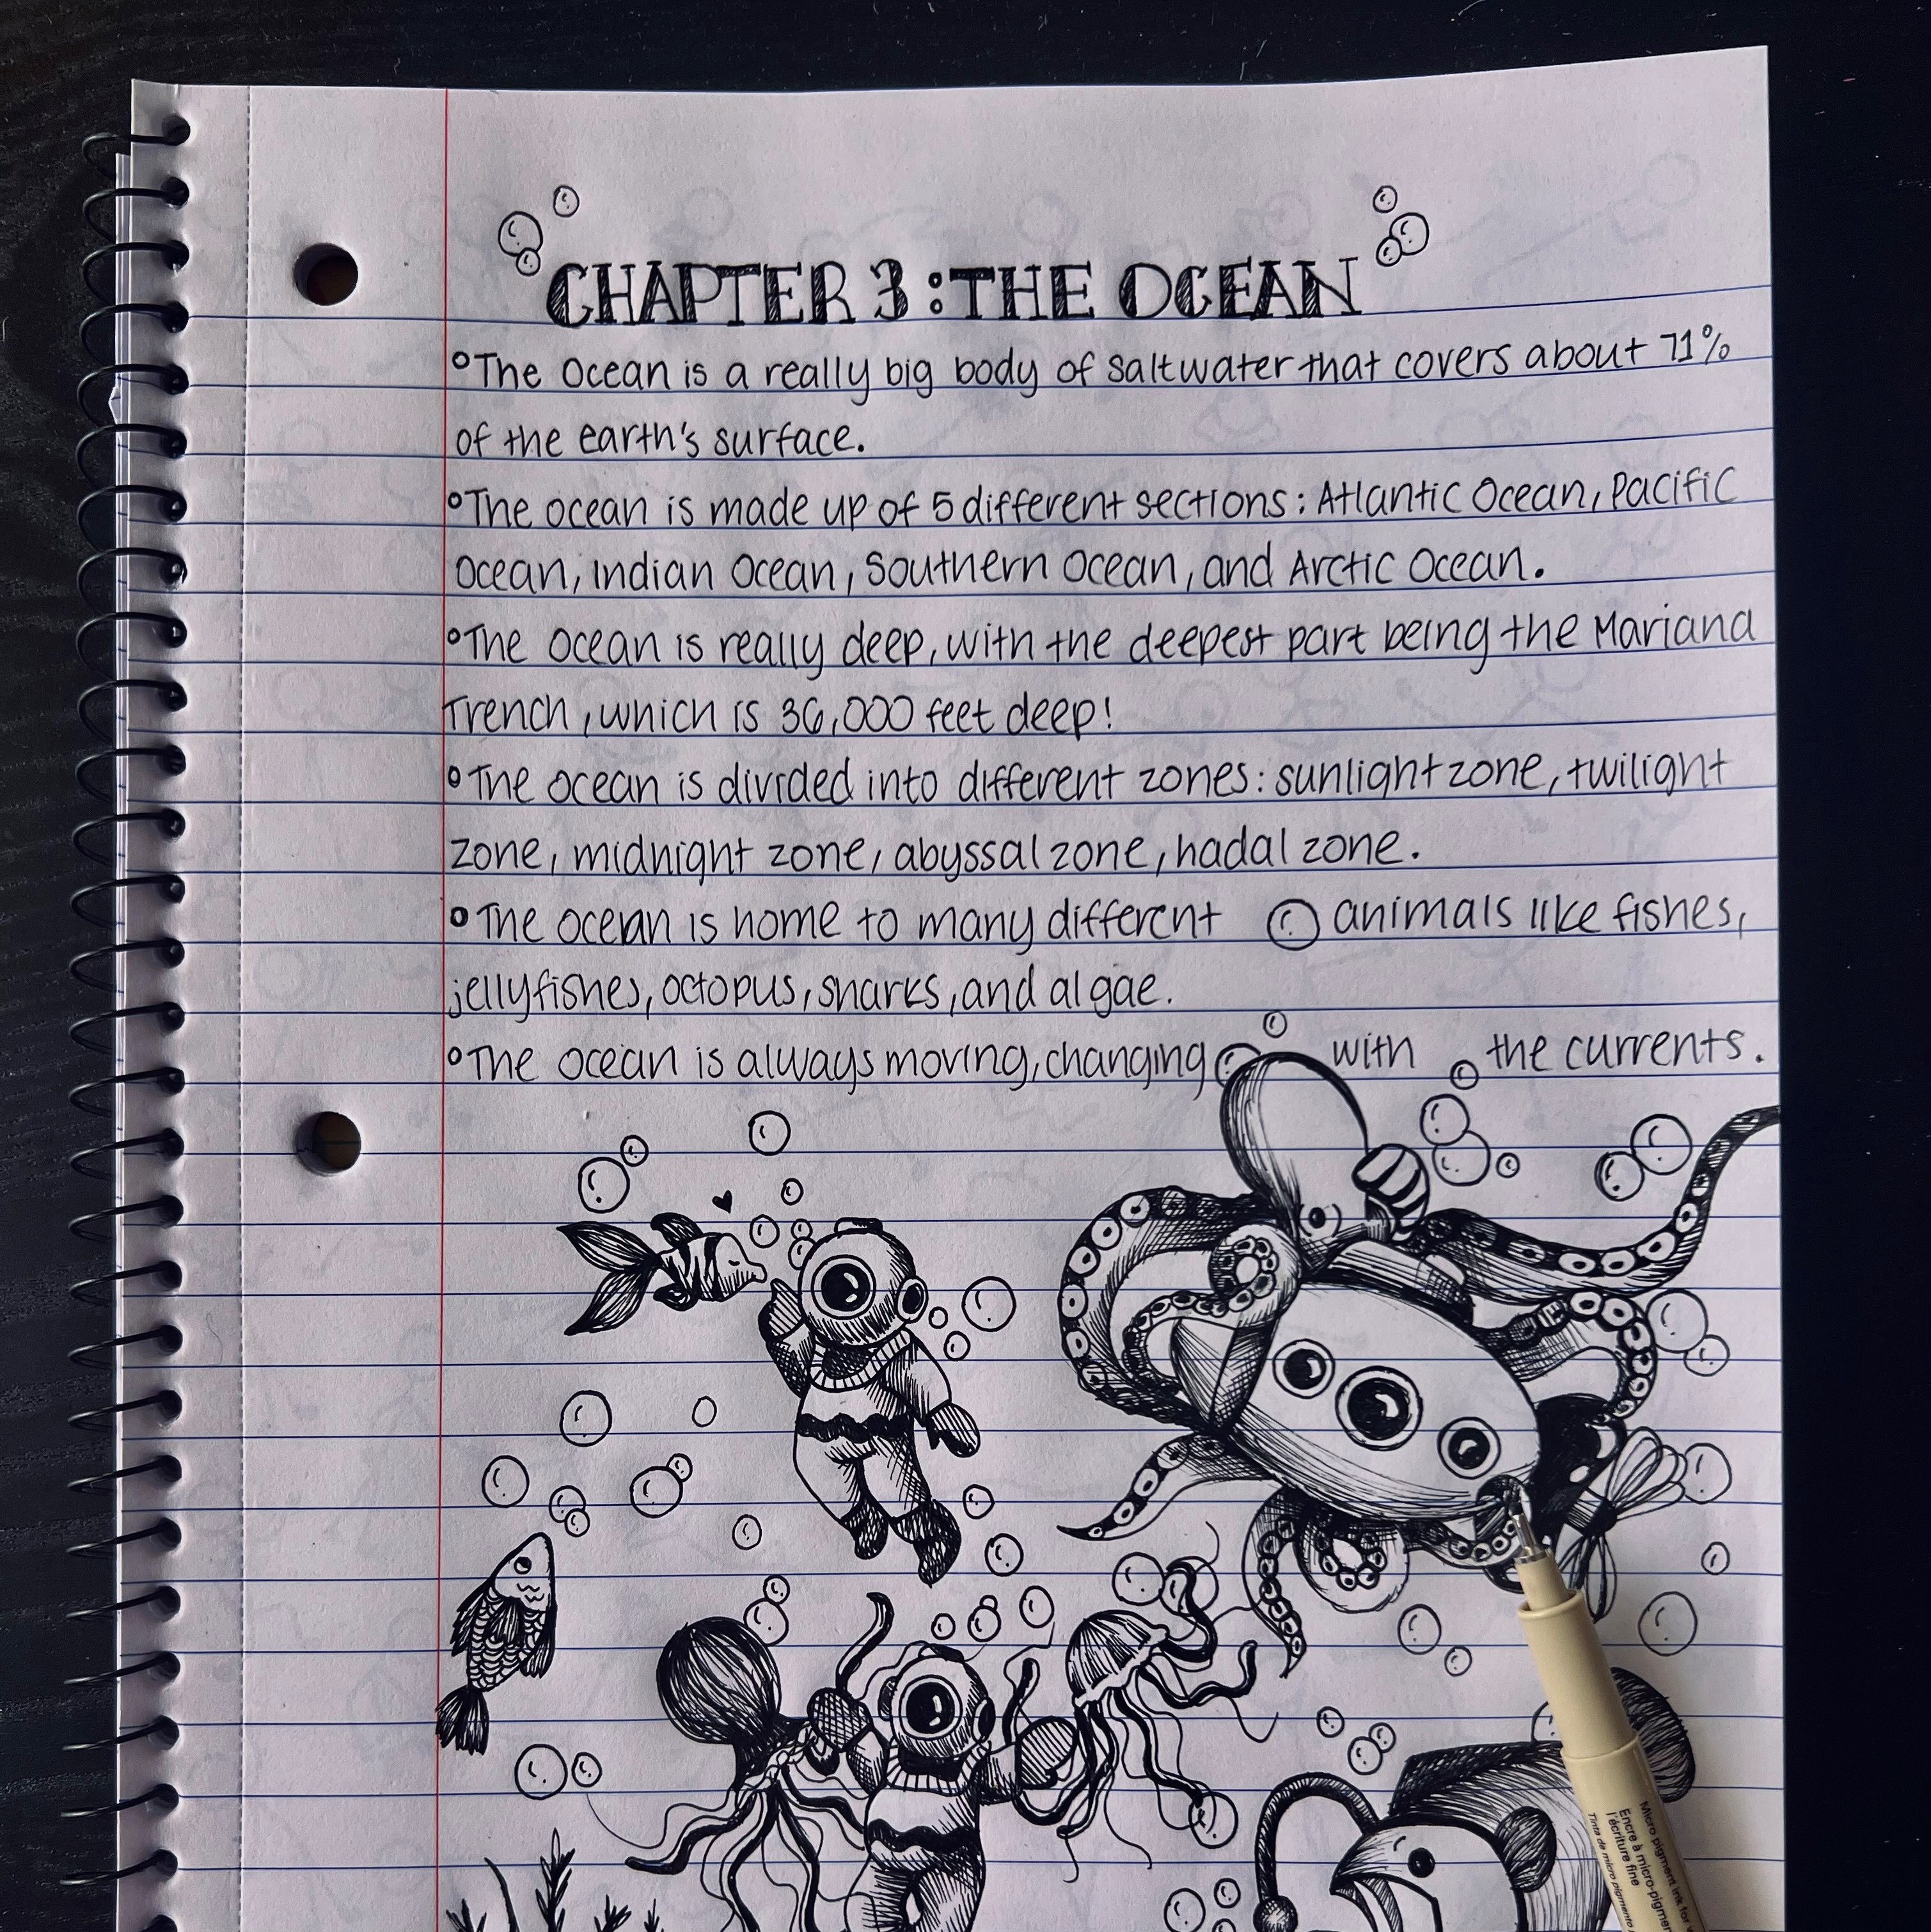 CHAPTER 3: THE OCEAN
°The Ocean is a really big body of saltwater that covers about 71%
of the earth's surface.
°The ocean is made up of 5 different sections: Atlantic Ocean, Pacific
Ocean, Indian Ocean, Southern Ocean, and Arctic Ocean.
°The ocean is really deep, with the deepest part being the Mariana
Trench, which is 36,000 feet deep!
°The ocean is divided into different zones: sunlight zone, twilight
zone, midnight zone, abyssal zone, hadal zone.
°The ocean is home to many different animals like fishes,
jellyfishes, octopus, sharks, and algae.
°The ocean is always moving, changing with the currents.
Micro pigment ink for
Encre à micro-pigmen
l'écriture fine
Tinta de micro pigmento